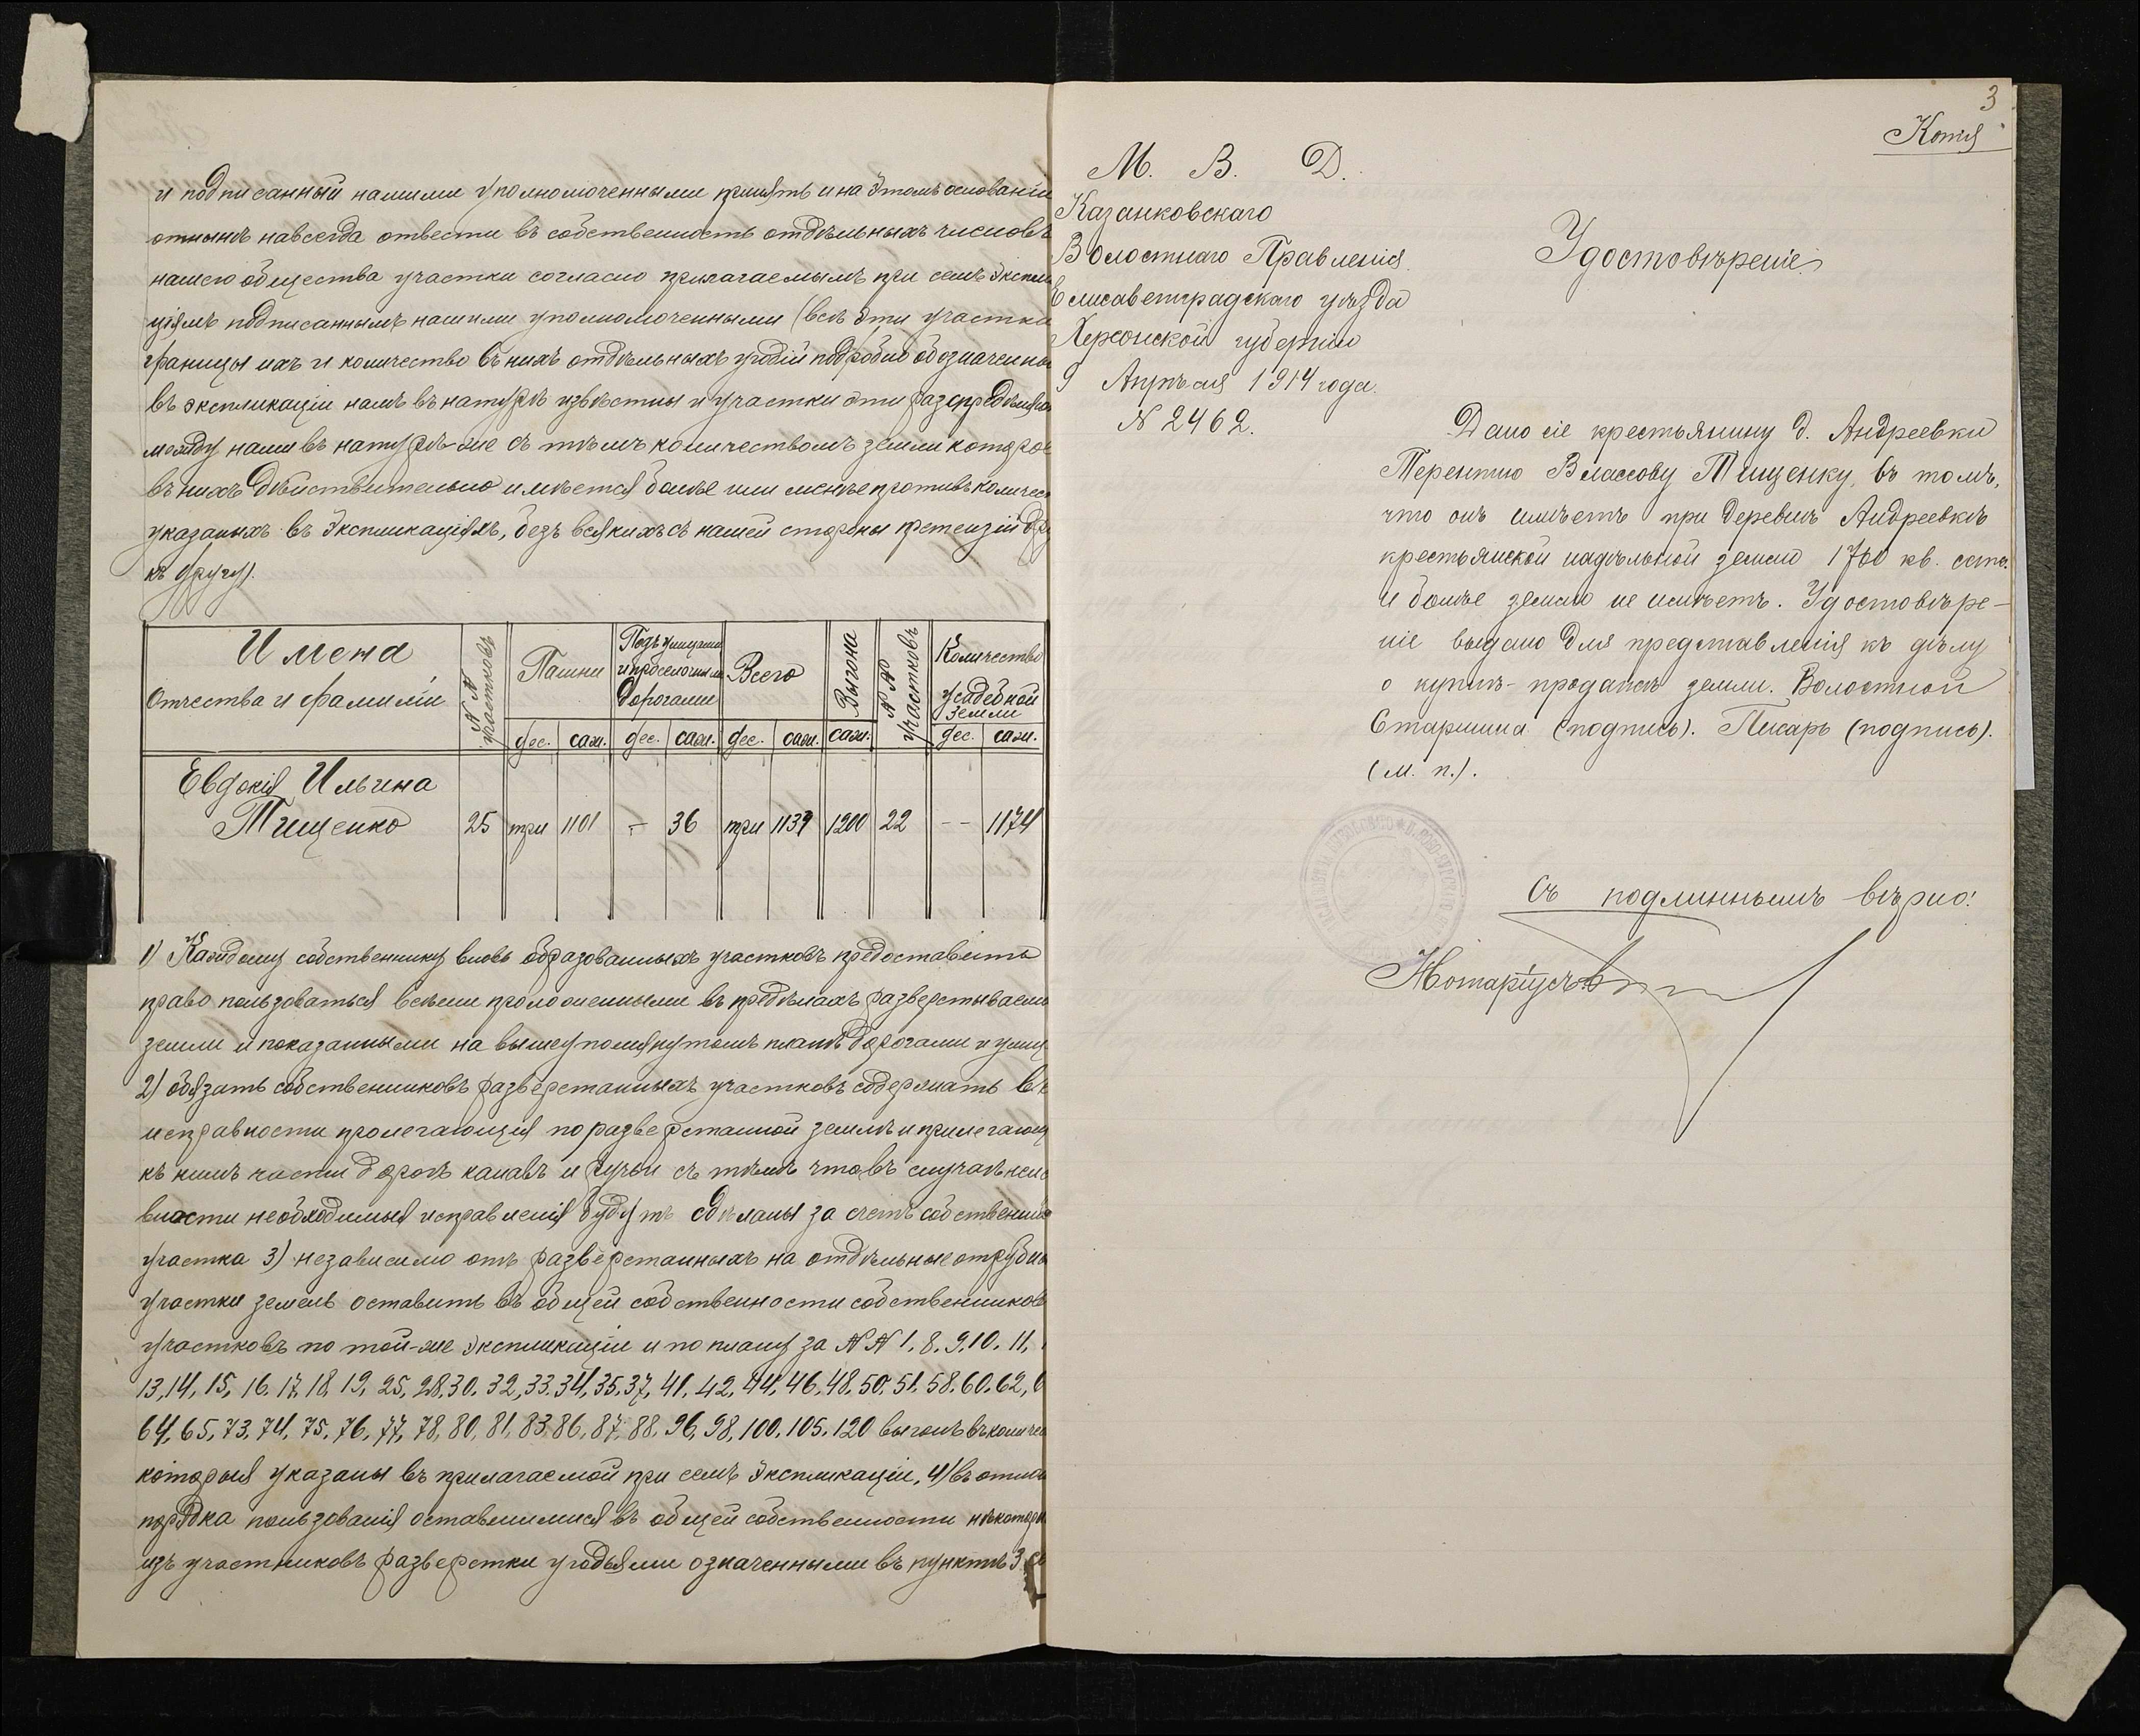 и подписанный нашими уполномоченными принять и на этомъ основаніи
отнынѣ навсегда отвести въ собственность отдѣльныхъ членовъ
нашего общества участки согласно прилагаемымъ при семъ экспли
ціямъ подписаннымъ нашими уполномоченными (всѣ эти участки
границы ихъ и количество въ нихъ отдѣльныхъ угодій подробно обозначенны
въ экспликаціи намъ въ натурѣ извѣстны и участки эти распредѣлены
между нами въ натурѣ-же съ тѣмъ количествомъ земли которое
въ нихъ дѣйствительно имѣется болѣе или менѣе противъ количес
указаныхъ въ экспликаціяхъ, безъ всякихъ съ нашей стороны претензій дру
къ другу).
Имена
Отчества и фамиліи
N N участковъ
Пашни
Подъ улицами и проселочными дорогами
Всего
Выгона
N N участковъ
Количество усадебной земли
дес. саж. дес. саж. дес. саж. саж. дес. саж.
Евдокія Ильина
Тищенко 25 три 1101 — 36 три 1137 1200 22 -- 1174
1) Каждому собственнику вновь образованныхъ участковъ предоставить
право пользоваться всѣми проложенными въ предѣлахъ разверстываемо
земли и показанными на вышеупомянутомъ планѣ дорогами и улиц
2) обязать собственниковъ разверстанныхъ участковъ содержать въ
исправности пролегающія по разверстанной землѣ и прилегающ
къ нимъ части дорогъ канавъ и ручьи съ тѣмъ что въ случаѣ неис
вности необходимыя исправленія будутъ сдѣланы за счетъ собственника
участка 3) независимо отъ разверстанныхъ на отдѣльные отрубны
участки земель оставить въ общей собственности собственниковъ
участковъ по той-же экспликаціи и по плану за N N 1, 8, 9, 10, 11,
13, 14, 15, 16, 17, 18, 19, 25, 28, 30, 32, 33, 34, 35, 37, 41, 42, 44, 46, 48, 50, 51, 58, 60, 62,
64, 65, 73, 74, 75, 76, 77, 78, 80, 81, 83, 86, 87, 88, 96, 98, 100, 105, 120 выгонъ въ количес
которыя указаны въ прилагаемой при семъ экспликаціи, 4) въ отнош
порядка пользованія оставшимися въ общей собственности нѣкоторы
изъ участниковъ разверстки угодьями означенными въ пунктѣ 3
3
Копія
М. В. Д.
Казанковскаго
Волостнаго Правленія
Елисаветградскаго уѣзда
Херсонской губерніи
9 Апрѣля 1914 года.
N 2462.
Удостовѣреніе
Дано сіе крестьянину д. Андреевки
Терентію Власову Тищенку, въ томъ,
что онъ имѣетъ при деревнѣ Андреевкѣ
крестьянской надѣльной земли 1760 кв. саж.
и болѣе земли не имѣетъ. Удостовѣре-
ніе выдано для представленія къ дѣлу
о куплѣ-продажѣ земли. Волостной
Старшина (подпись). Писарь (подпись).
(м. п.).
Съ подлиннымъ вѣрно:
Нотаріусъ